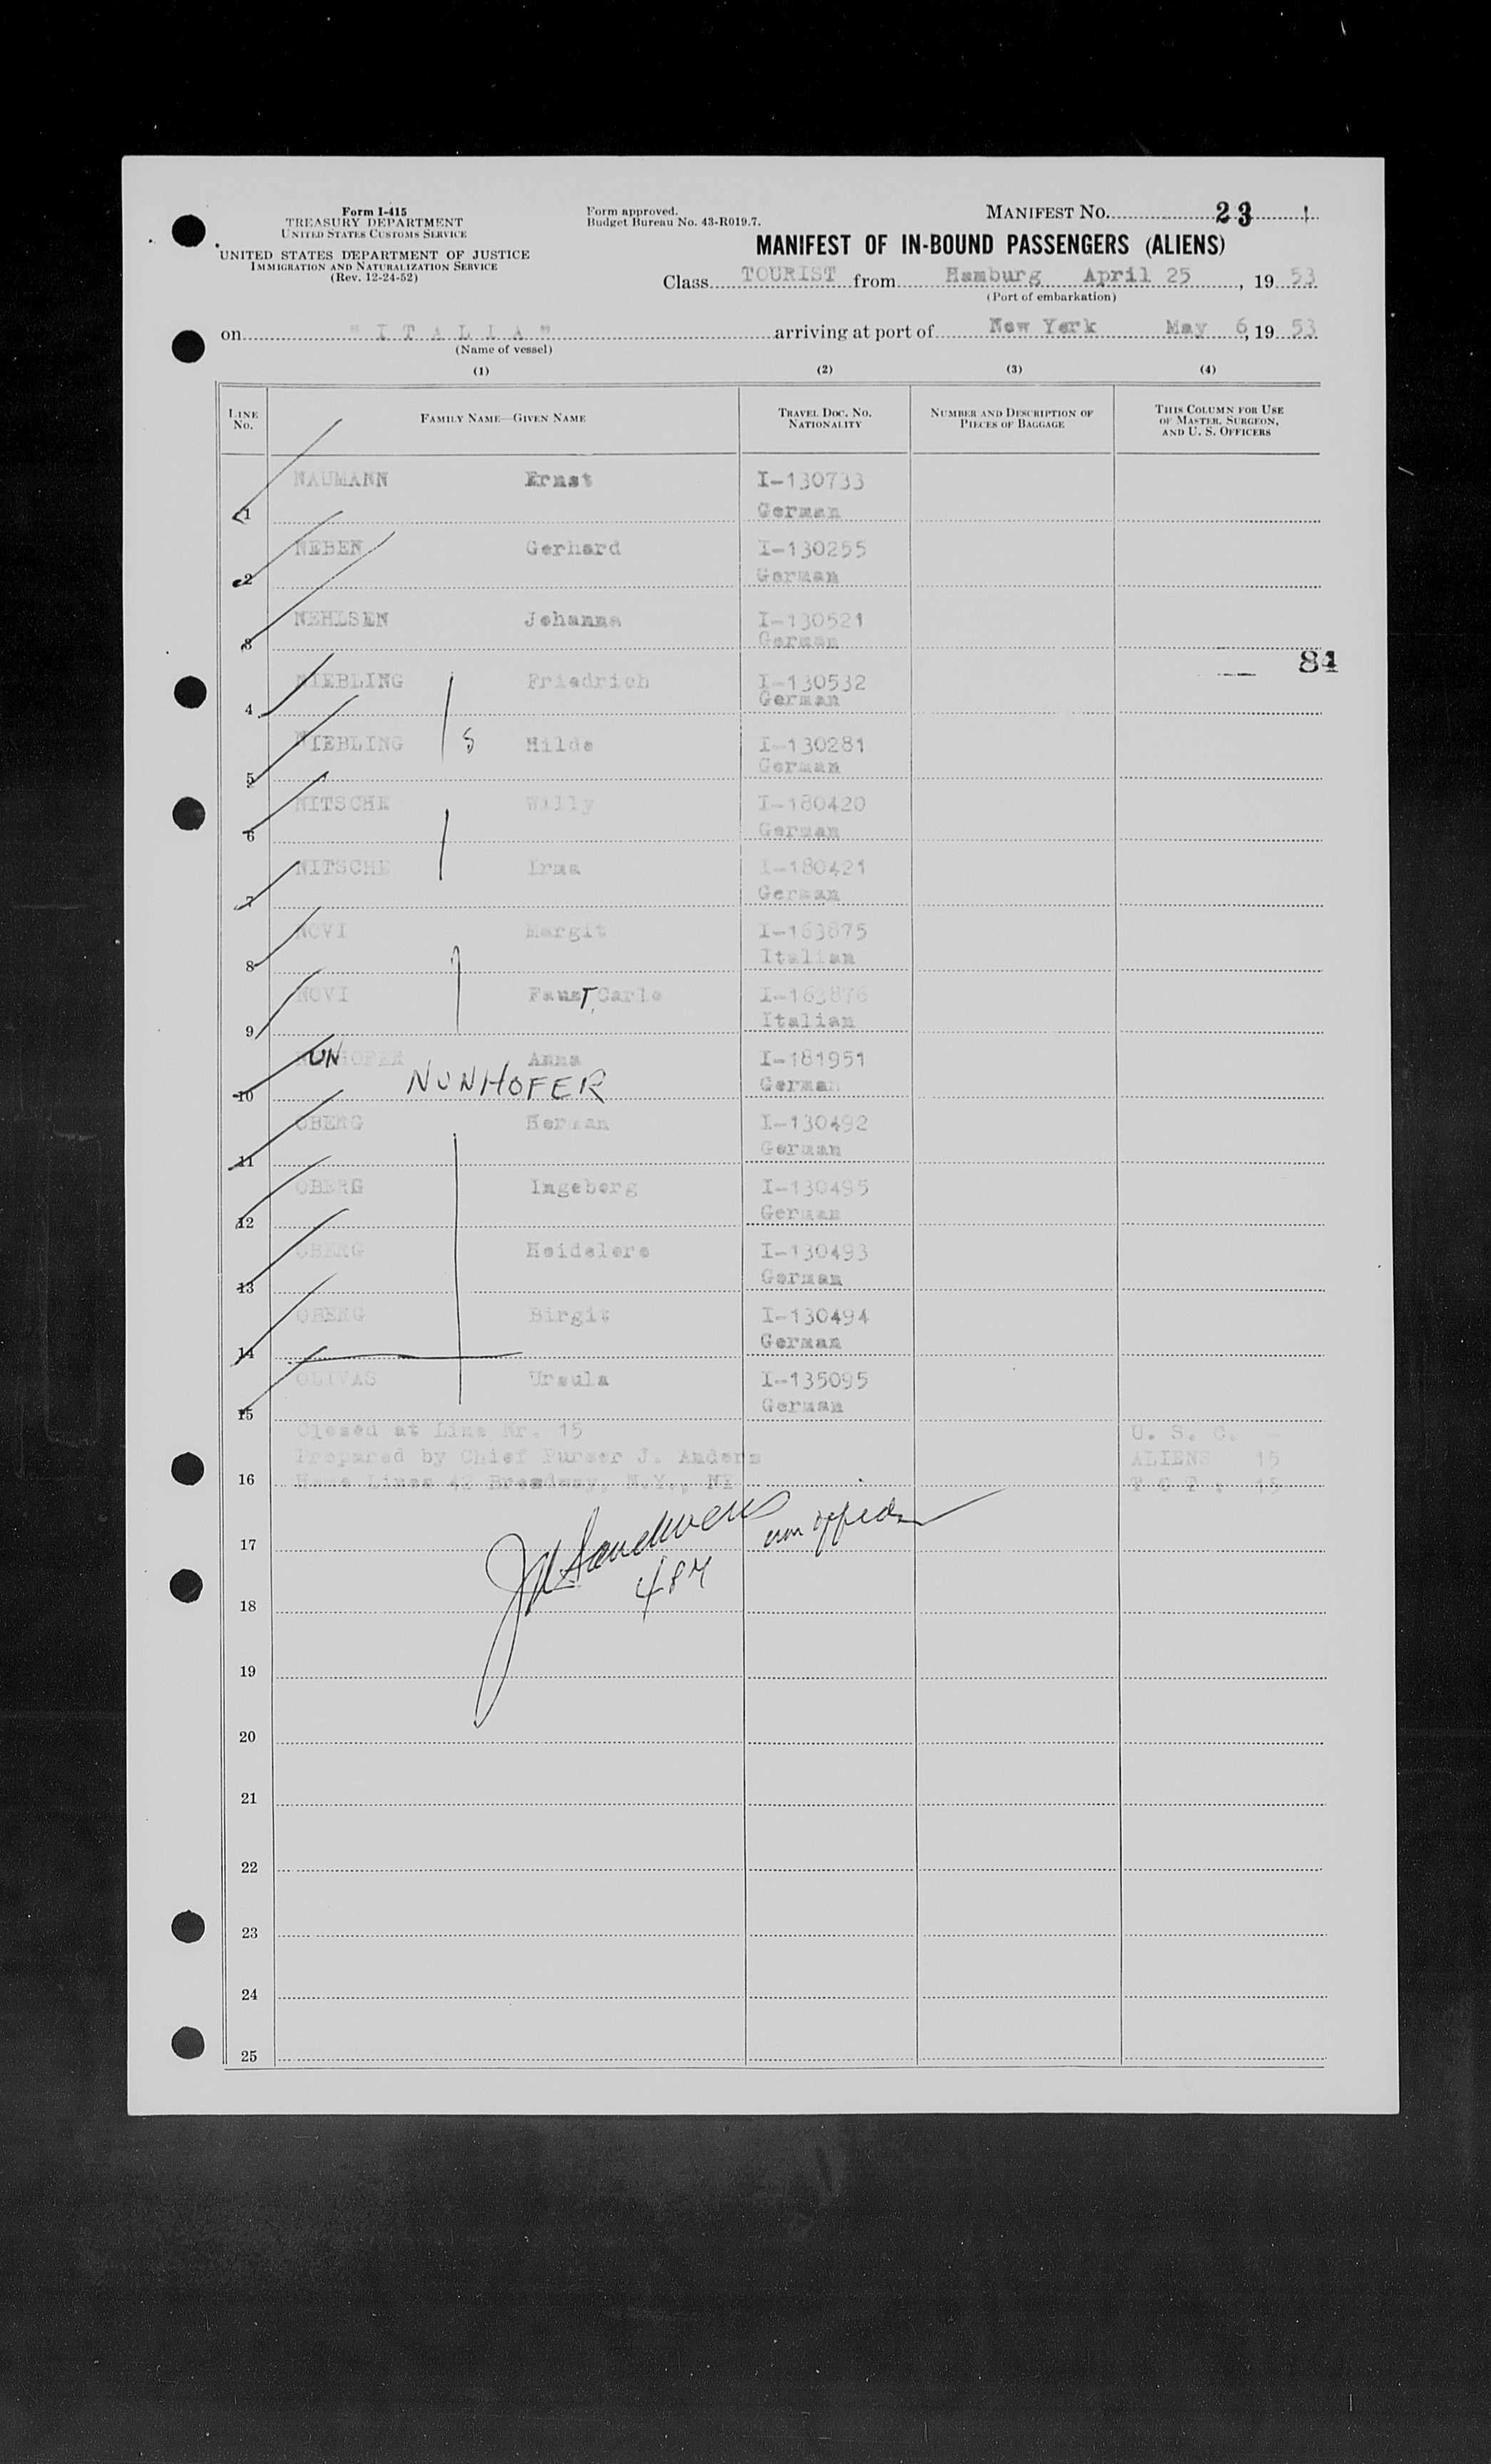 Form I-415
TREASURY DEPARTMENT
UNITED STATES CUSTOMS SERVICE
UNITED STATES DEPARTMENT OF JUSTICE
IMMIGRATION AND NATURALIZATION SERVICE
(Rev. 12-24-52)
Form approved.
Budget Bureau No. 43-R019.7.
MANIFEST NO. 23
MANIFEST OF IN-BOUND PASSENGERS (ALIENS)
Class TOURIST from Hamburg April 25, 19 53
(Port of embarkation)
on "ITALIA" arriving at port of New York May 6, 19 53
(Name of vessel)
(1) (2) (3) (4)
LINE NO. FAMILY NAME—GIVEN NAME TRAVEL DOC. NO. NATIONALITY NUMBER AND DESCRIPTION OF PIECES OF BAGGAGE THIS COLUMN FOR USE OF MASTER, SURGEON, AND U. S. OFFICERS
NAUMANN Ernst I-130733
1 German
NEBEN Gerhard I-130255
2 German
NEHLSEN Johanna I-130521
3 German
84
NIEBLING Friedrich I-130532
4 German
NIEBLING Hilde I-130281
5 German
NITSCHE Willy I-180420
6 German
NITSCHE Irma I-180421
7 German
NOVI Margit I-163875
8 Italian
NOVI FausT, Carlo I-163876
9 Italian
UNHOFER Anna I-181951
10 NUNHOFER German
OBERG Herman I-130492
11 German
OBERG Ingeborg I-130495
12 German
OBERG Heidelore I-130493
13 German
OBERG Birgit I-130494
14 German
OLIVAS Ursula I-135095
15 German
Closed at Line Nr. 15 U. S. C. -
Prepared by Chief Purser J. Anders ALIENS 15
16 Home Lines 42 Broadway, N.Y., NY T O T . 15
17
487
18
19
20
21
22
23
24
25